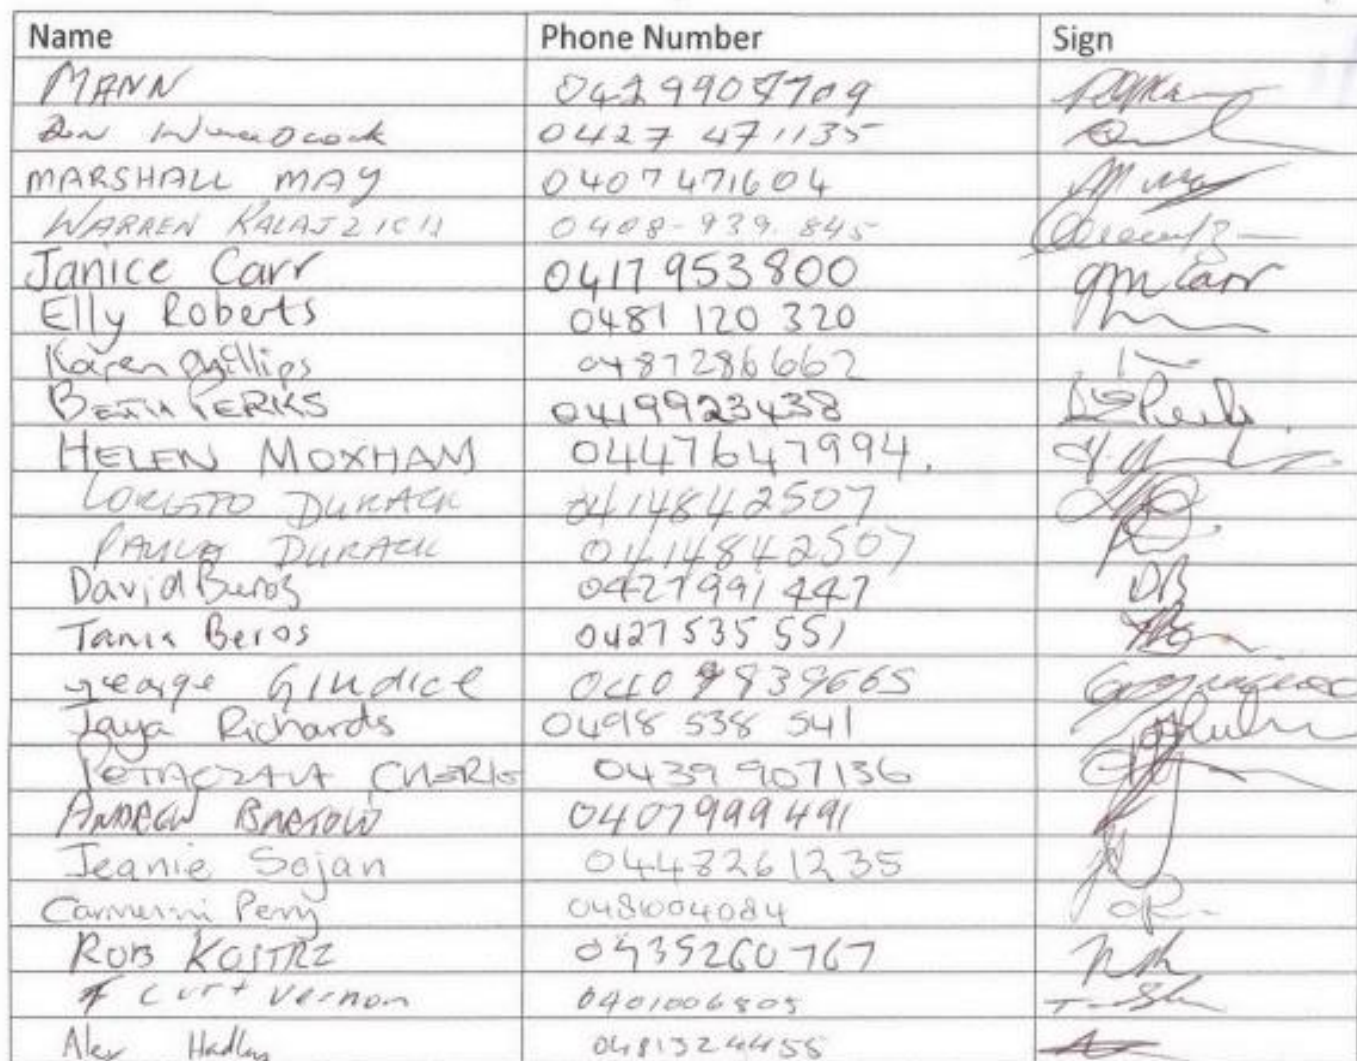 Name Phone Number Sign
MANN 0429908709
0427 471135
MARSHALL MAY 0407471604
WARREN KALAJZICH 0408-939.845
Janice Carr 0417 953 800 JM Carr
Elly Roberts 0481 120 320
Karen Phillips 0487286662
BETH PERKS 0419923438
HELEN MOXHAM 0447647994.
LORETO DURACK 0414842507
PAULA DURACK 0414842507
David Beros 0427991447 DB
Tania Beros 0427 535 551
george Giudice 0409839665
Jaya Richards 0498 538 541
0439 907136
ANDREW BARTOLO 0407999491
Jeanie Sojan 0448261235
Perry 0481004084
ROB KOSTRZ 0435260767
Curt Vernon 0401006805
Alex Hadley 0481324455